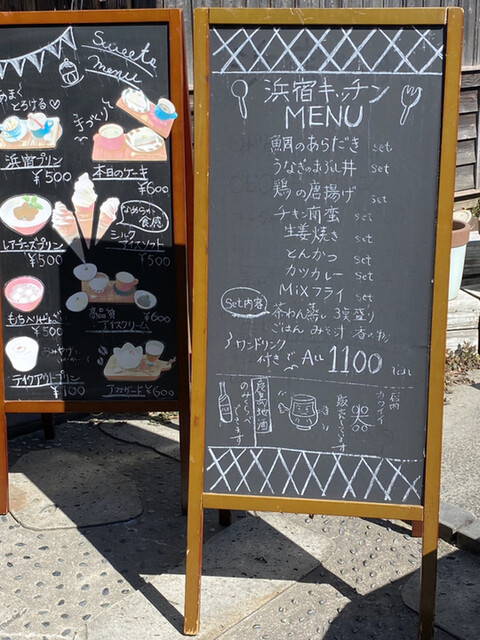 Sweets
menu
あまく
とろける♡
手づくり
浜宿プリン
¥500
本日のケーキ
¥600
なめらか
食感
ミルク
アイスソフト
¥500
レアチーズプリン
¥500
高品質
アイスクリーム
¥500
テイクアウトプリン
アフォガード¥600
浜宿キッチン
MENU
鯛のあらだき set
うなぎのまぶし丼 set
鶏の唐揚げ set
チキン南蛮 set
生姜焼き set
とんかつ set
カツカレー set
MiXフライ set
Set内容
茶わん蒸し 3点盛り
ごはん みそ汁 香の物
ワンドリンク
付きで ALL 1100
鹿島地酒
のみくらべ
できます
店内
カワイイ
販売してます